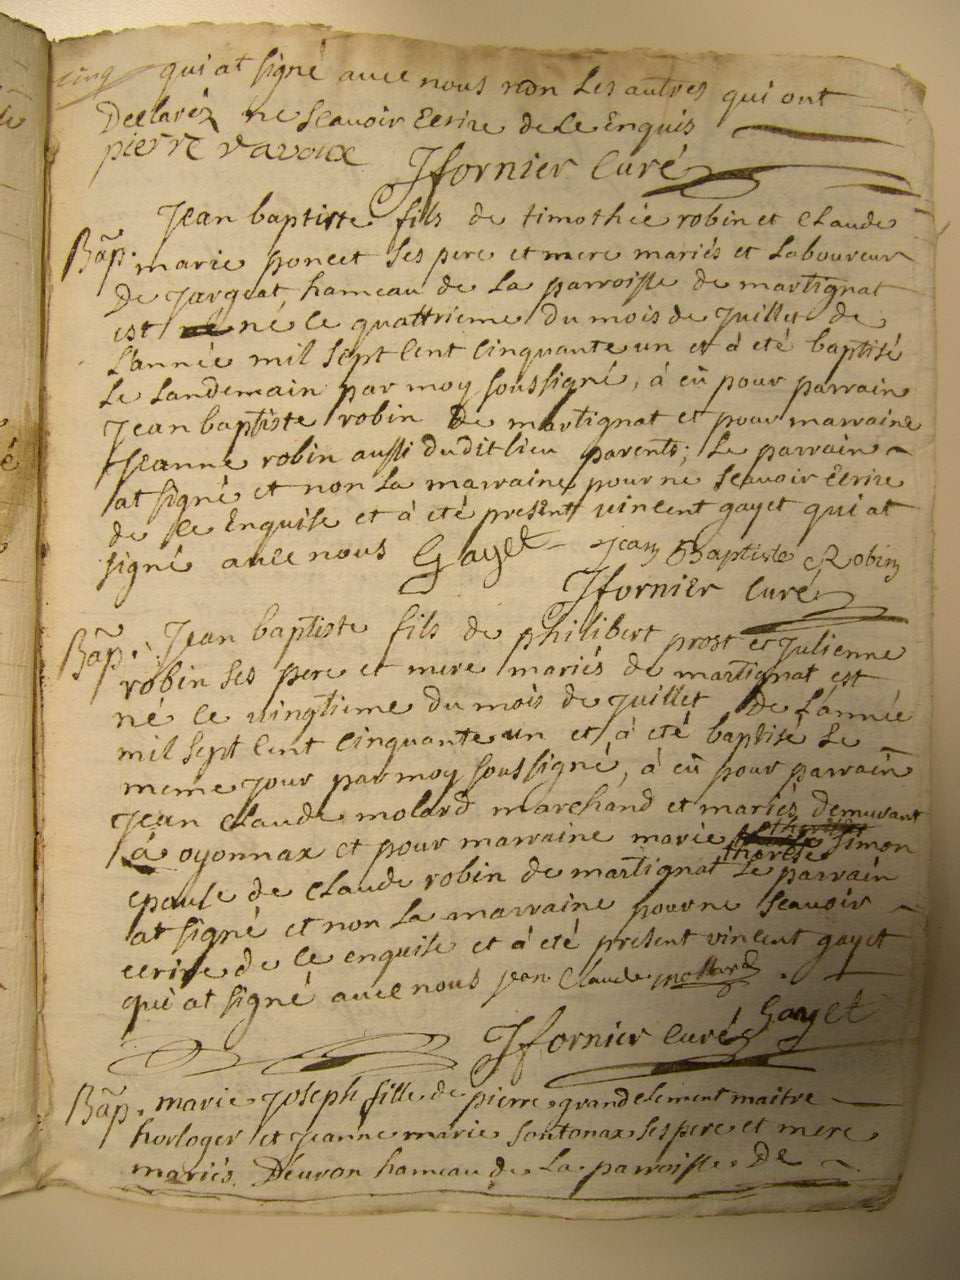 cinq qui at signé avec nous non les autres qui ont
Declaréz ne scavoir Ecrire de ce Enquis
pierre ravoux
Jfornier Curé
Bap. Jean baptiste fils de timothée robin et Claude
marie poncet ses pere et mere mariés et Laboureur
De Jargeat, hameau de La parroisse de martignat
est né le quattrieme du mois de Juillet de
L'année mil sept Cent Cinquante un et à été baptisé
Le Landemain par moy soussigné, à eü pour parrain
Jean baptiste robin de martignat et pour marraine
Jeanne robin aussi dudit lieu parents; Le parrain
at signé et non La marraine pour ne scavoir Ecrire
de ce Enquise et à été present vincent gayet qui at
signé avec nous Gayet Jean Baptiste Robin
Jfornier Curé
Bap. Jean baptiste fils de philibert prost et Julienne
robin ses pere et mere mariés de martignat est
né le vingtieme du mois de Juillet de L'année
mil sept Cent Cinquante un et à été baptisé Le
meme Jour par moy soussigné, à eü pour parrain
Jean Claude molard marchand et mariés demurant
à oyonnax et pour marraine marie therese simon
epouse de Claude robin de martignat Le parrain
at signé et non La marraine pour ne scavoir
ecrire de ce enquise et à été present vincent gayet
qui at signé avec nous Jean Claude mollard
Gayet
Jfornier Curé
Bap. marie Joseph fille de pierre grandclement maitre
horloger et Jeanne marie sontonax ses pere et mere
mariés D'euron hameau de La parroisse De